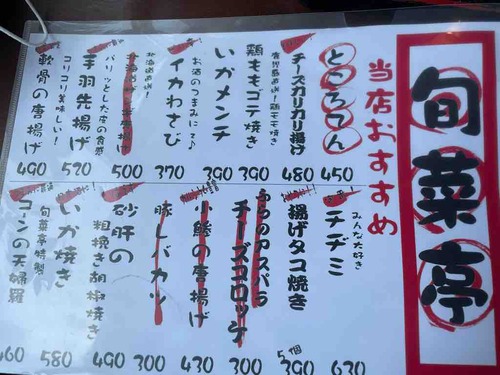 旬菜亭
当店おすすめ
ところてん
450
チーズカリカリ揚げ
480
鹿児島直送!鶏天天焼き
鶏ももゴテ焼き
390
いかメンチ
390
お酒のつまみにて♪
イカわさび
370
北海道直送!
500
パリッとした皮の食感
手羽先揚げ
590
コリコリ美味しい!
軟骨の唐揚げ
490
みんな大好き
チヂミ
630
揚げタコ焼き
5個
390
チーズコロッケ
300
小鯵の唐揚げ
430
豚レバカツ
300
砂肝の
粗挽き胡椒焼き
490
いか焼き
580
旬菜亭特製
コーンの天婦羅
460